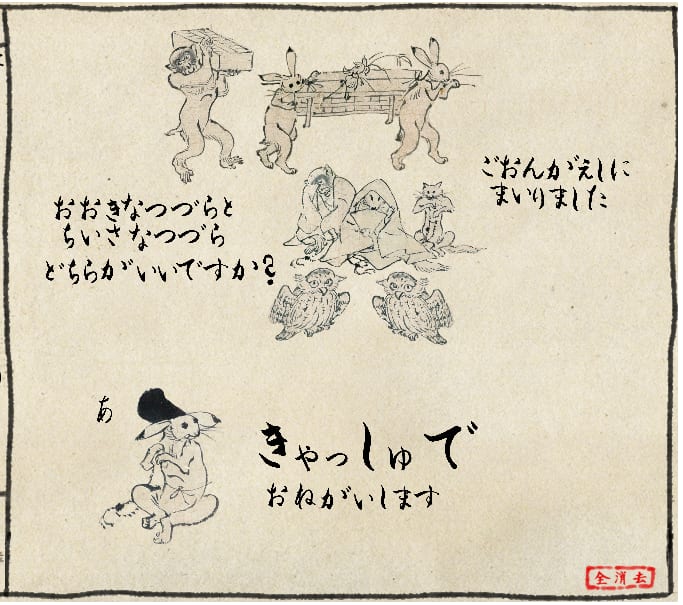 ごおんがえしに
まいりました
おおきなつづらと
ちいさなつづら
どちらがいいですか?
あ
きゃっしゅで
おねがいします
全消去